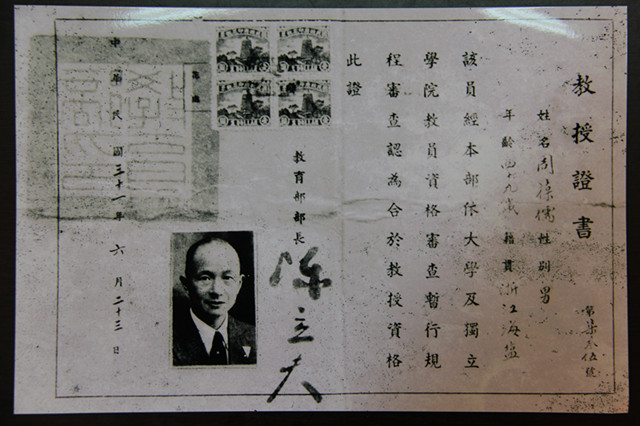 教授證書
第柒叁伍號
姓名周葆儒性別男
年齡四十九歲籍貫浙江海鹽
該員經本部依大學及獨立
學院教員資格審查暫行規
程審查認為合於教授資格
此證
教育部部長
陳立夫
中華民國三十一年六月二十三日